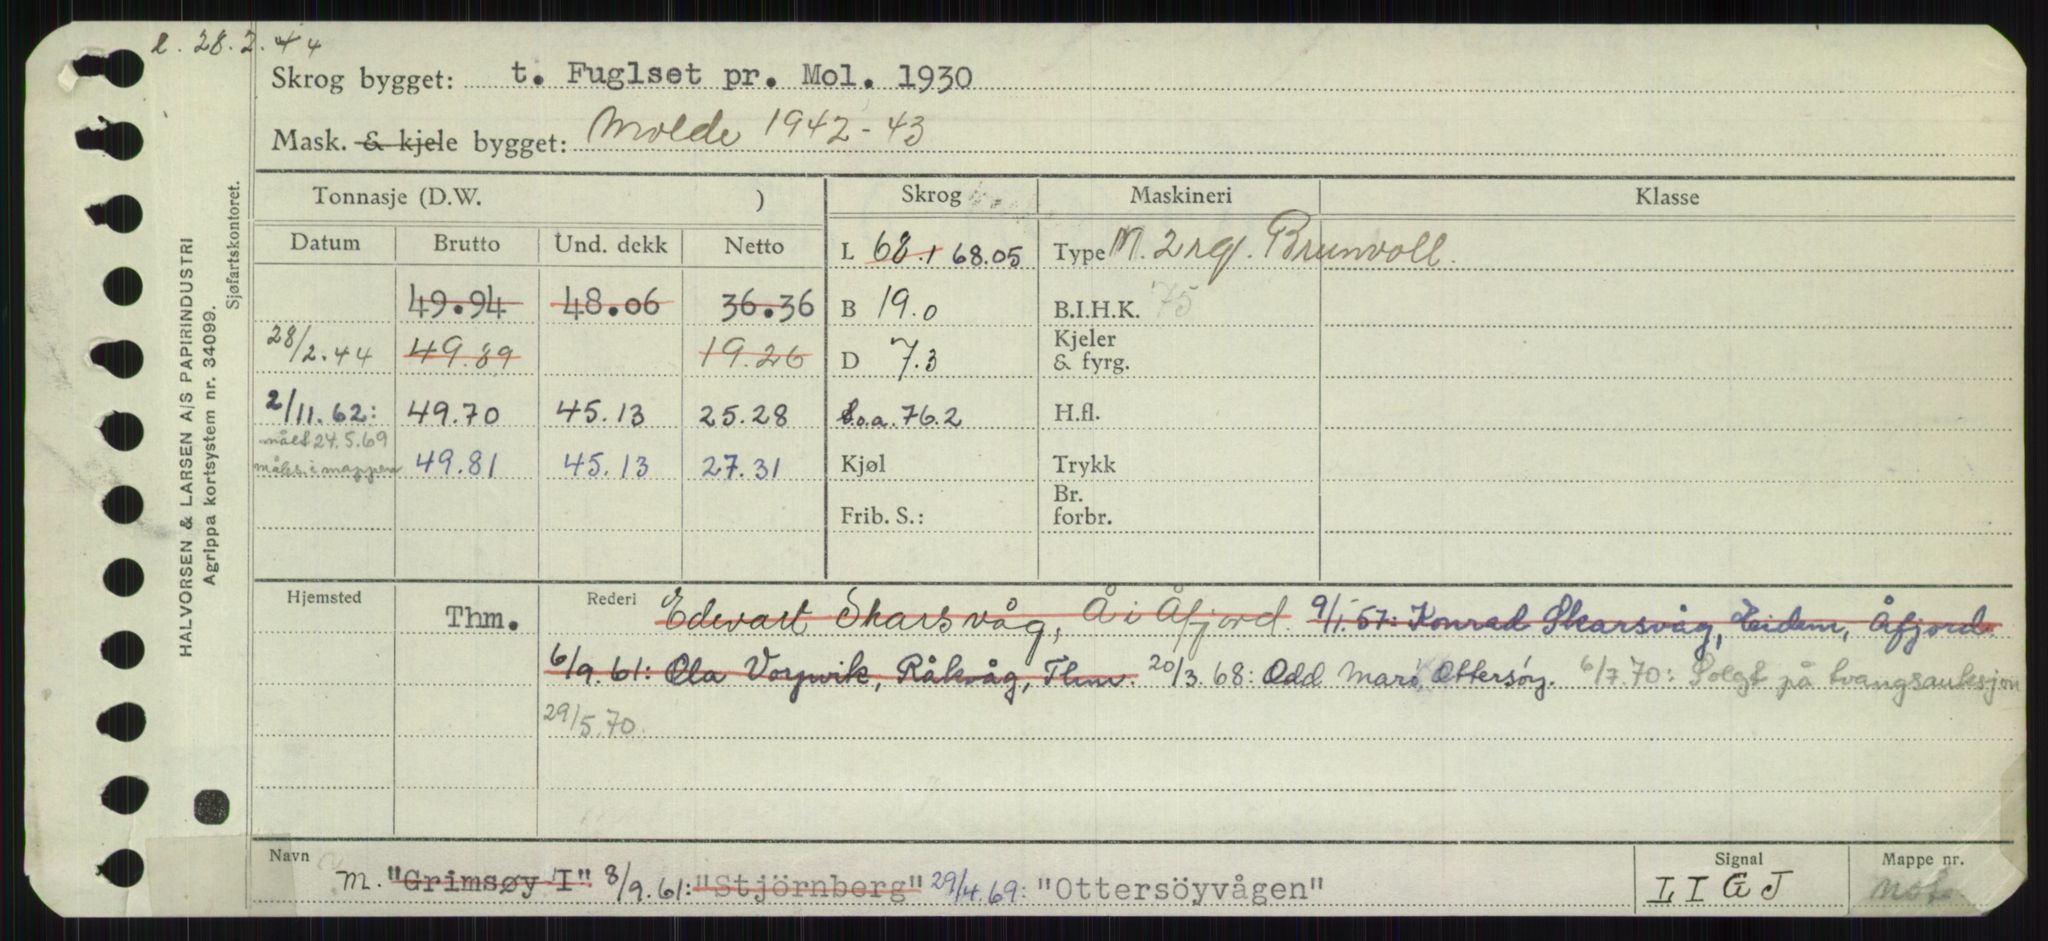 28.2.44
Skrog bygget: t. Fuglset pr. Mol. 1930
Mask. & kjele bygget: Molde 1942-43
HALVORSEN & LARSEN A/S PAPIRINDUSTRI
Agrippa kortsystem nr. 34099.
Sjøfartskontoret.
Tonnasje (D.W. ) Skrog Maskineri Klasse
Datum Brutto Und. dekk Netto L 68.1 68.05 Type M. 2 rg. Brunvoll.
49.94 48.06 36.36 B 19.0 B.I.H.K. 75
28/2.44 49.89 19.26 D 7.3 Kjeler & fyrg.
2/11.62: 49.70 45.13 25.28 L.o.a. 76.2 H.fl.
målt 24.5.69
måleb. i mappen 49.81 45.13 27.31 Kjøl Trykk
Frib. S.: Br. forbr.
Hjemsted Thm. Rederi Edevart Skarsvåg, Å i Åfjord 9/1.57: Konrad Skarsvåg, Eidem, Åfjord.
6/9.61: Ola Vorpvik, Råkvåg, Thm. 20/3.68: Odd Marø, Ottersøy. 6/7.70: Solgt på tvangsauksjon
29/5.70.
Navn Signal Mappe nr.
M. "Grimsøy I" 8/9.61: "Stjörnberg" 29/4.69: "Ottersöyvågen" LIGJ